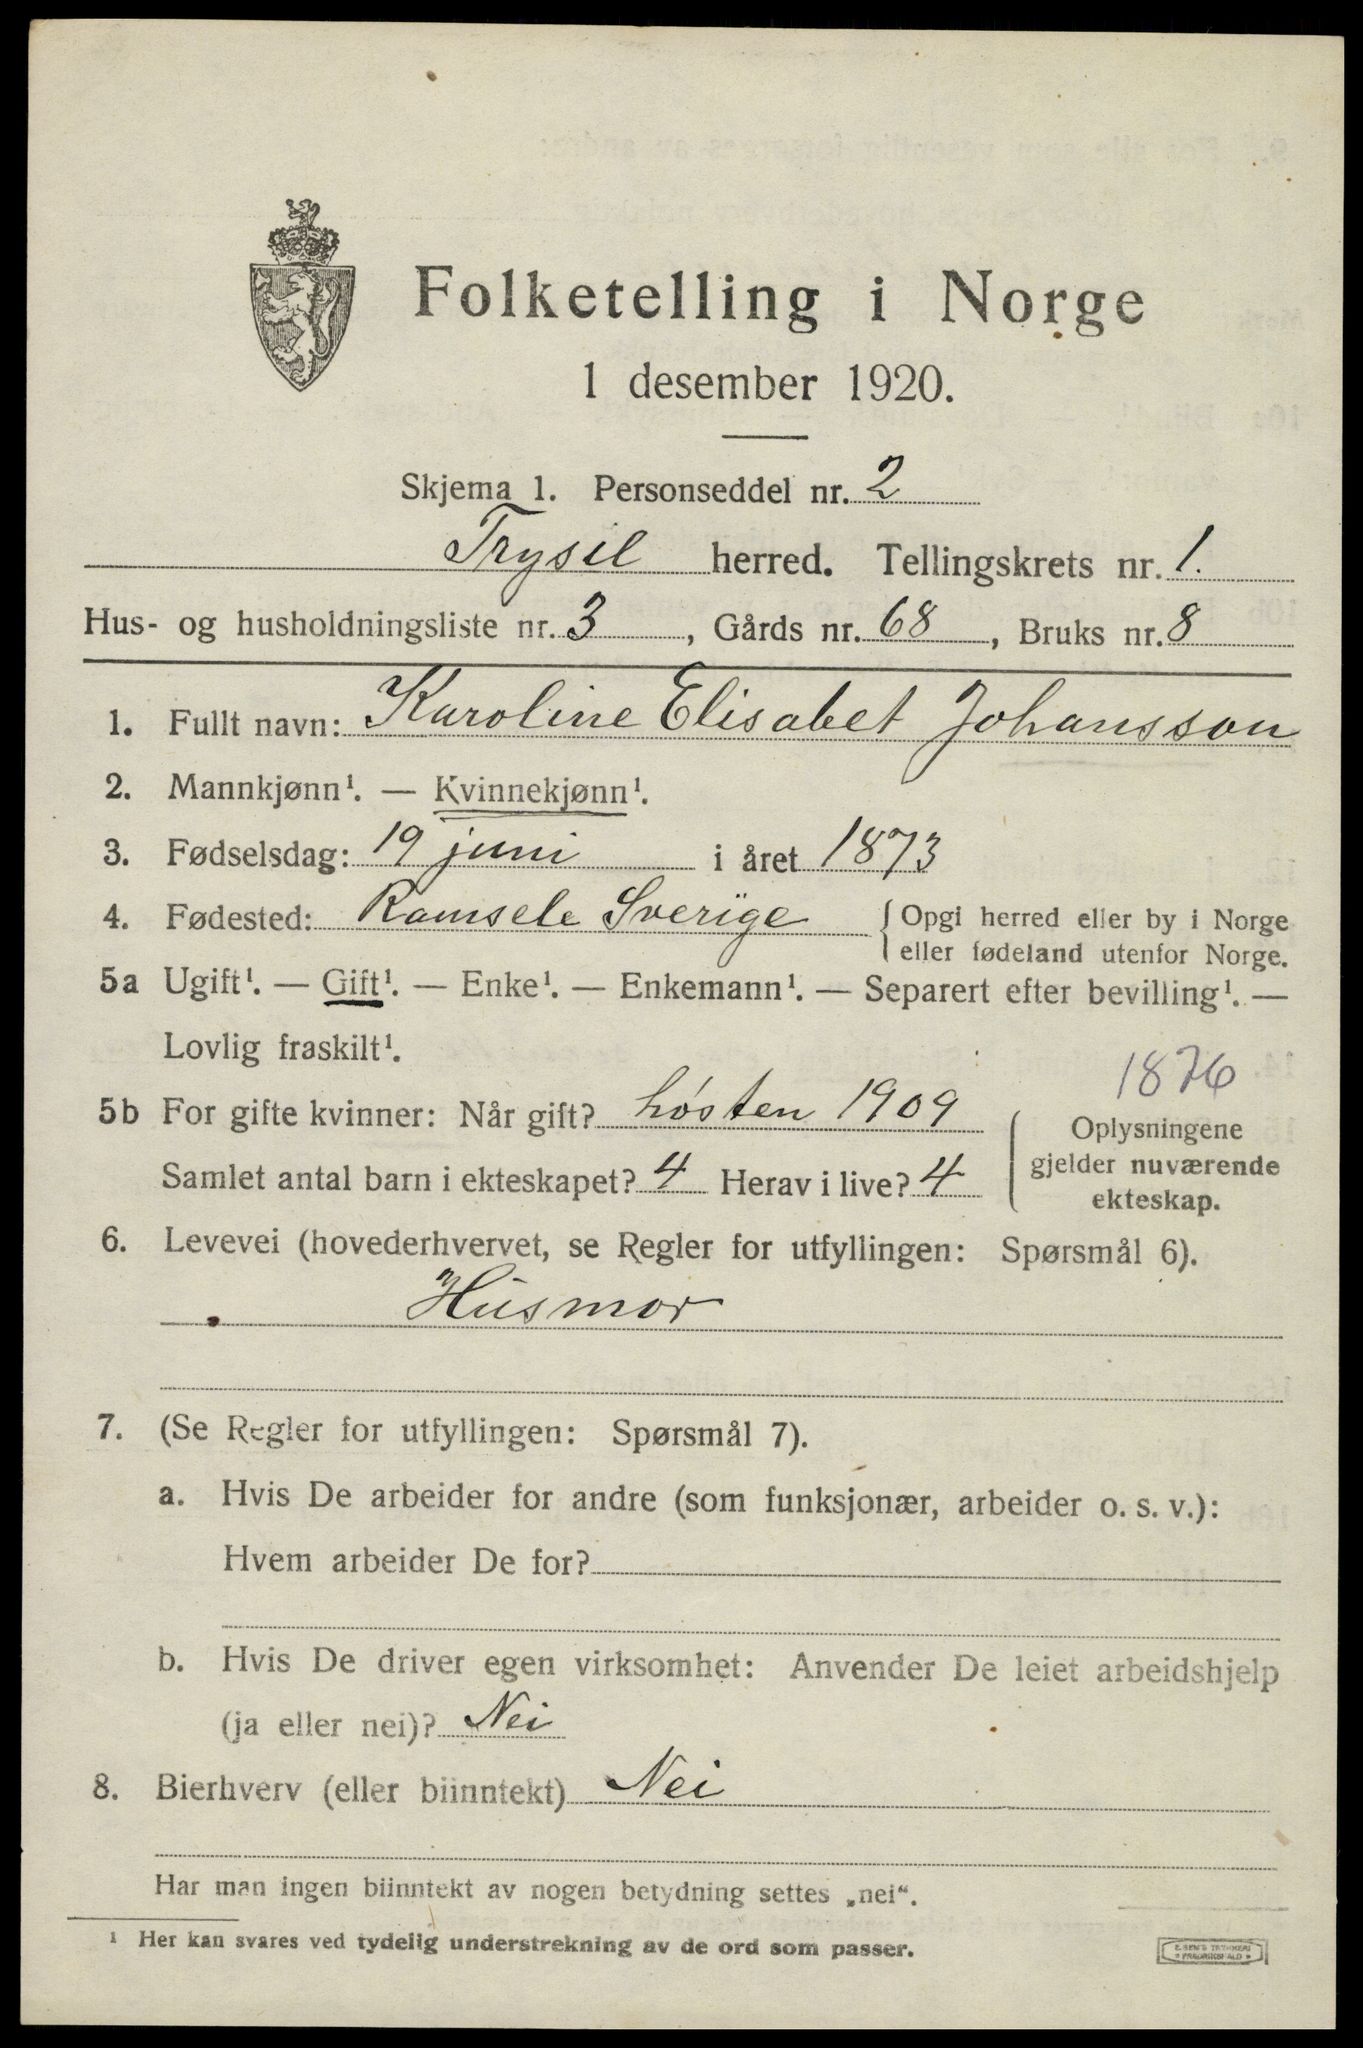 Folketelling i Norge
1 desember 1920.
Skjema 1. Personseddel nr. 2
Trysil herred. Tellingskrets nr. 1.
Hus- og husholdningsliste nr. 3, Gårds nr. 68, Bruks nr. 8
1. Fullt navn: Karoline Elisabet Johansson
2. Mannkjønn¹. — Kvinnekjønn¹.
3. Fødselsdag: 19 juni i året 1873
4. Fødested: Ramsele Sverige { Opgi herred eller by i Norge
eller fødeland utenfor Norge.
5a Ugift¹. — Gift¹. — Enke¹. — Enkemann¹. — Separert efter bevilling¹. —
Lovlig fraskilt¹.
1876
5b For gifte kvinner: Når gift? høsten 1909
Samlet antal barn i ekteskapet? 4 Herav i live? 4
Oplysningene
gjelder nuværende
ekteskap.
6. Levevei (hovederhvervet, se Regler for utfyllingen: Spørsmål 6).
Husmor
7. (Se Regler for utfyllingen: Spørsmål 7).
a. Hvis De arbeider for andre (som funksjonær, arbeider o. s. v.):
Hvem arbeider De for?
b. Hvis De driver egen virksomhet: Anvender De leiet arbeidshjelp
(ja eller nei)? Nei
8. Bierhverv (eller biinntekt) Nei
Har man ingen biinntekt av nogen betydning settes „nei".
¹ Her kan svares ved tydelig understrekning av de ord som passer.